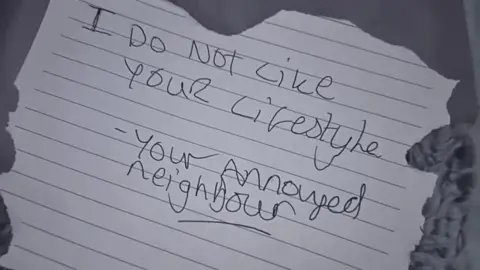 I Do Not Like
your Lifestyle
- Your Annoyed
neighbour